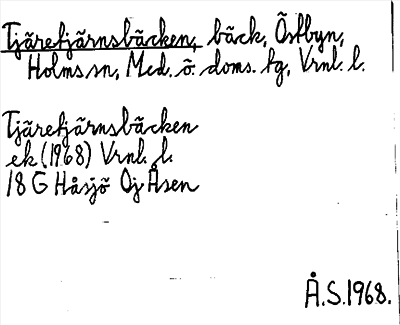 Tjäretjärnsbäcken, bäck, Östbyn,
Holms sn, Med. ö. doms. tg, Vrnl. l.
Tjäretjärnsbäcken
ek (1968) Vrnl. l.
18 G Håsjö Oj Åsen
Å.S. 1968.